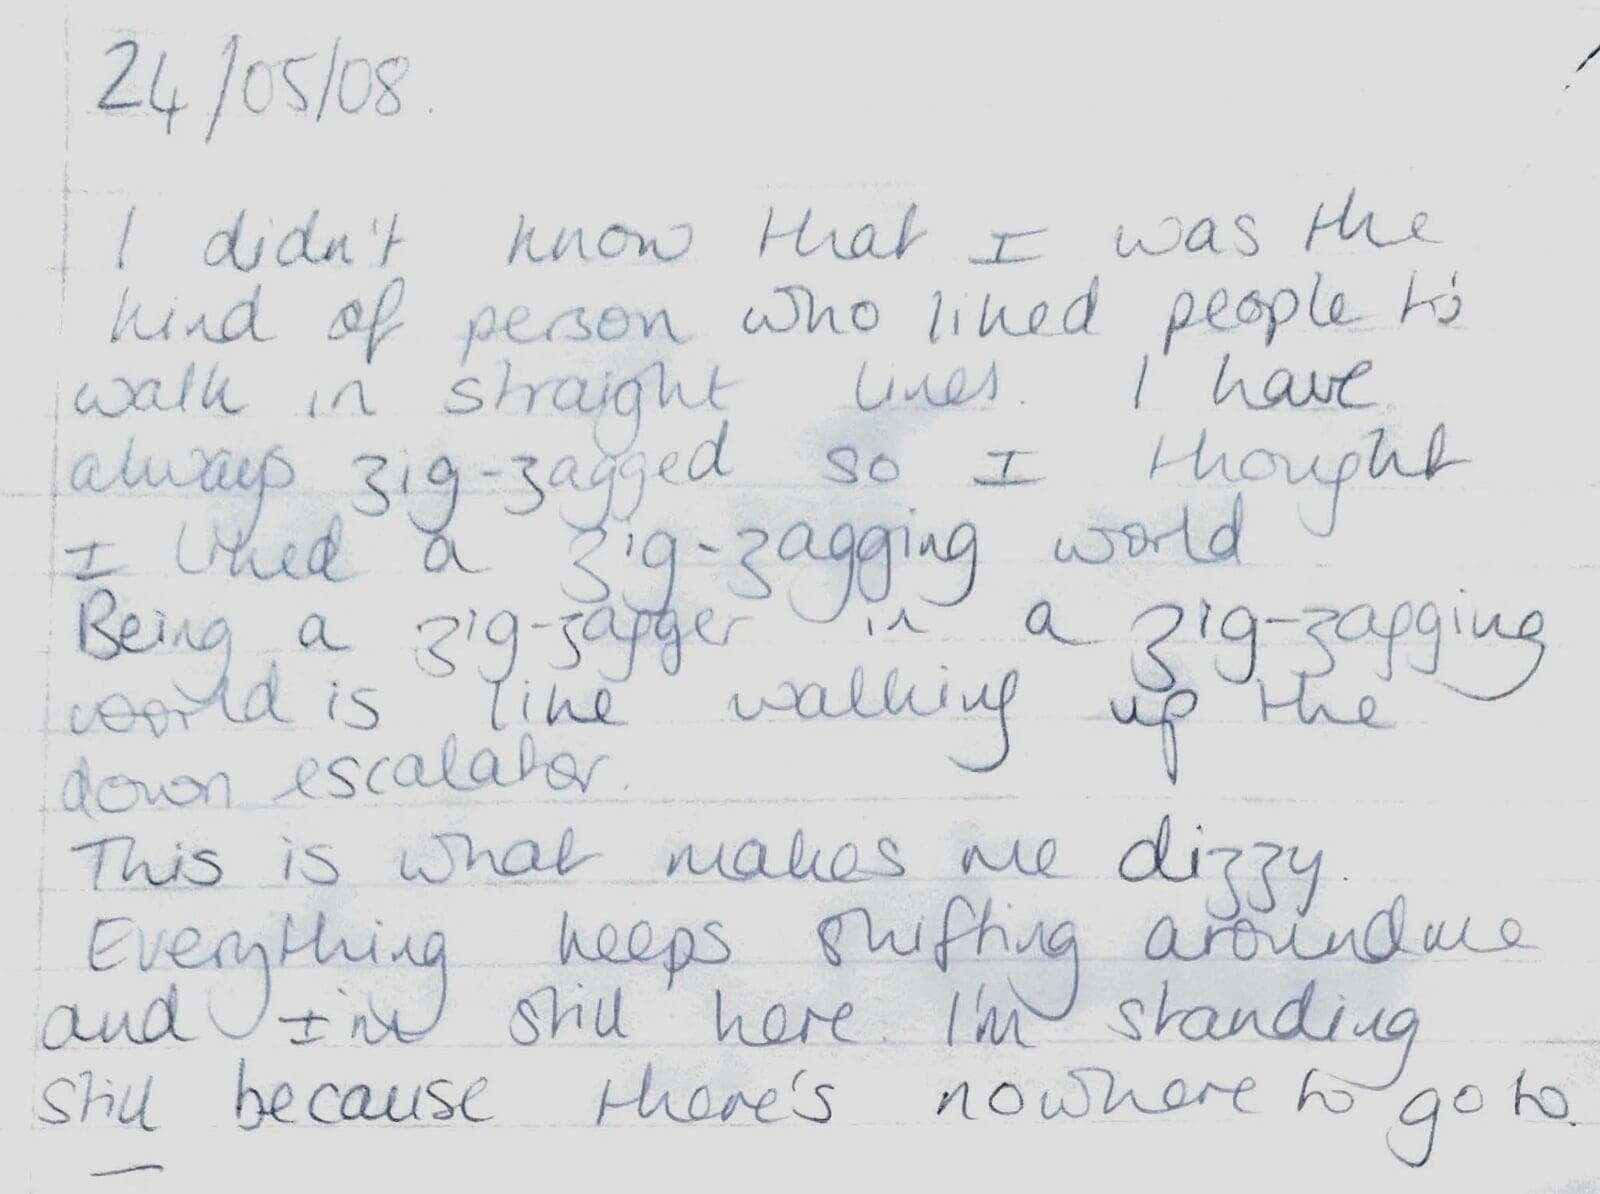 24/05/08.
I didn't know that I was the
kind of person who liked people to
walk in straight lines. I have
always zig-zagged so I thought
I liked a zig-zagging world
Being a zig-zagger in a zig-zagging
world is like walking up the
down escalator.
This is what makes me dizzy.
Everything keeps shifting around me
and I'm still here. I'm standing
still because there's nowhere to go to.